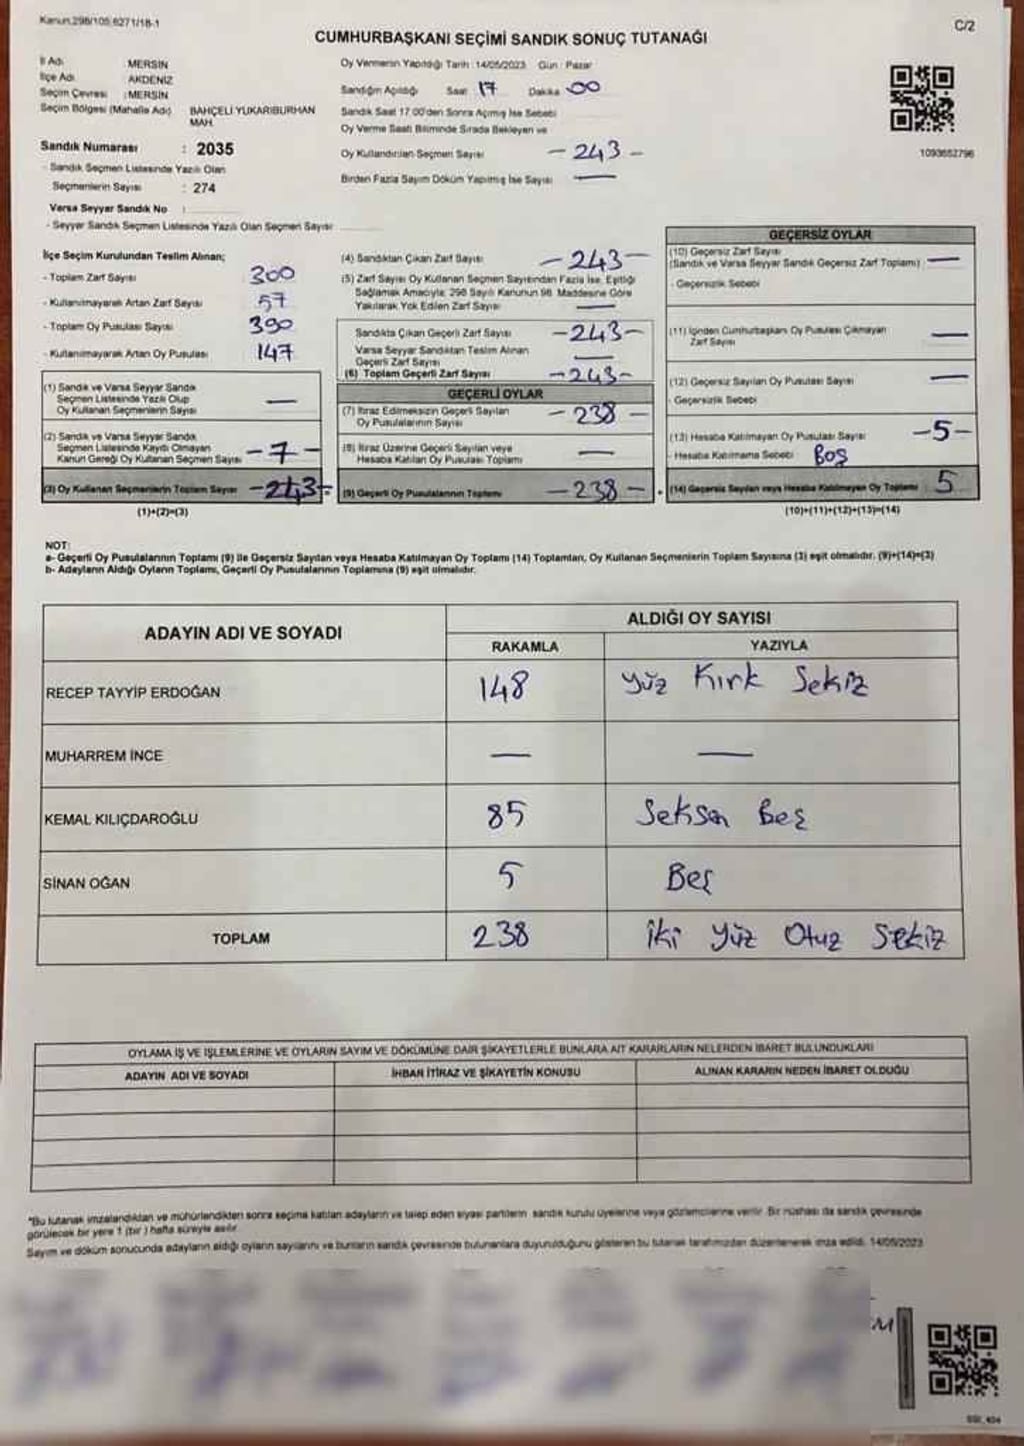 Kanun 298/105, 6271/18-1
C/2
CUMHURBAŞKANI SEÇİMİ SANDIK SONUÇ TUTANAĞI
İl Adı : MERSİN
İlçe Adı : AKDENİZ
Seçim Çevresi : MERSİN
Seçim Bölgesi (Mahalle Adı) BAHÇELİ YUKARIBURHAN MAH.
Sandık Numarası : 2035
- Sandık Seçmen Listesinde Yazılı Olan
Seçmenlerin Sayısı : 274
Varsa Seyyar Sandık No :
- Seyyar Sandık Seçmen Listesinde Yazılı Olan Seçmen Sayısı
Oy Vermenin Yapıldığı Tarih : 14/05/2023 Gün : Pazar
Sandığın Açıldığı Saat 17 Dakika 00
Sandık Saat 17.00'den Sonra Açılmış İse Sebebi
Oy Verme Saati Bitiminde Sırada Bekleyen ve
Oy Kullandırılan Seçmen Sayısı - 243 -
Birden Fazla Sayım Döküm Yapılmış İse Sayısı —
1093652796
İlçe Seçim Kurulundan Teslim Alınan;
- Toplam Zarf Sayısı 300
- Kullanılmayarak Artan Zarf Sayısı 57
- Toplam Oy Pusulası Sayısı 390
- Kullanılmayarak Artan Oy Pusulası 147
(1) Sandık ve Varsa Seyyar Sandık
Seçmen Listesinde Yazılı Olup
Oy Kullanan Seçmenlerin Sayısı —
(2) Sandık ve Varsa Seyyar Sandık
Seçmen Listesinde Kayıtlı Olmayan
Kanun Gereği Oy Kullanan Seçmen Sayısı - 7 -
(3) Oy Kullanan Seçmenlerin Toplam Sayısı - 243 -
(1)+(2)=(3)
(4) Sandıktan Çıkan Zarf Sayısı - 243 -
(5) Zarf Sayısı Oy Kullanan Seçmen Sayısından Fazla İse, Eşitliği
Sağlamak Amacıyla; 298 Sayılı Kanunun 98. Maddesine Göre
Yakılarak Yok Edilen Zarf Sayısı —
Sandıkta Çıkan Geçerli Zarf Sayısı - 243 -
Varsa Seyyar Sandıktan Teslim Alınan
Geçerli Zarf Sayısı —
(6) Toplam Geçerli Zarf Sayısı - 243 -
GEÇERLİ OYLAR
(7) İtiraz Edilmeksizin Geçerli Sayılan
Oy Pusulalarının Sayısı - 238 -
(8) İtiraz Üzerine Geçerli Sayılan veya
Hesaba Katılan Oy Pusulası Toplamı —
(9) Geçerli Oy Pusulalarının Toplamı - 238 -
GEÇERSİZ OYLAR
(10) Geçersiz Zarf Sayısı
(Sandık ve Varsa Seyyar Sandık Geçersiz Zarf Toplamı) —
- Geçersizlik Sebebi
(11) İçinden Cumhurbaşkanı Oy Pusulası Çıkmayan
Zarf Sayısı —
(12) Geçersiz Sayılan Oy Pusulası Sayısı —
- Geçersizlik Sebebi
(13) Hesaba Katılmayan Oy Pusulası Sayısı - 5 -
- Hesaba Katılmama Sebebi Boş
(14) Geçersiz Sayılan veya Hesaba Katılmayan Oy Toplamı 5
(10)+(11)+(12)+(13)=(14)
NOT:
a- Geçerli Oy Pusulalarının Toplamı (9) ile Geçersiz Sayılan veya Hesaba Katılmayan Oy Toplamı (14) Toplamları, Oy Kullanan Seçmenlerin Toplam Sayısına (3) eşit olmalıdır. (9)+(14)=(3)
b- Adayların Aldığı Oyların Toplamı, Geçerli Oy Pusulalarının Toplamına (9) eşit olmalıdır.
ADAYIN ADI VE SOYADI
ALDIĞI OY SAYISI
RAKAMLA YAZIYLA
RECEP TAYYİP ERDOĞAN 148 Yüz Kırk Sekiz
MUHARREM İNCE — —
KEMAL KILIÇDAROĞLU 85 Seksen Beş
SİNAN OĞAN 5 Beş
TOPLAM 238 İki Yüz Otuz Sekiz
OYLAMA İŞ VE İŞLEMLERİNE VE OYLARIN SAYIM VE DÖKÜMÜNE DAİR ŞİKAYETLERLE BUNLARA AİT KARARLARIN NELERDEN İBARET BULUNDUKLARI
ADAYIN ADI VE SOYADI İHBAR İTİRAZ VE ŞİKAYETİN KONUSU ALINAN KARARIN NEDEN İBARET OLDUĞU
*Bu tutanak imzalandıktan ve mühürlendikten sonra seçime katılan adayların ve talep eden siyasi partilerin sandık kurulu üyelerine veya gözlemcilerine verilir. Bir nüshası da sandık çevresinde
görülecek bir yere 1 (bir) hafta süreyle asılır.
Sayım ve döküm sonucunda adayların aldığı oyların sayılarını ve bunların sandık çevresinde bulunanlara duyurulduğunu gösteren bu tutanak tarafımızdan düzenlenerek imza edildi. 14/05/2023